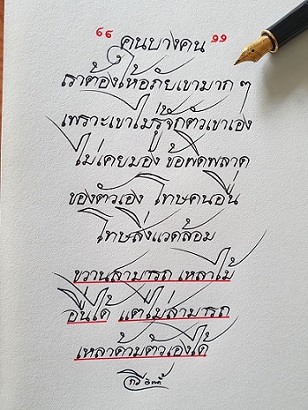 “ คนบางคน ”
เราต้องให้อภัยเขามาก ๆ
เพราะเขาไม่รู้จักตัวเขาเอง
ไม่เคยมอง ข้อผิดพลาด
ของตัวเอง โทษคนอื่น
โทษสิ่งแวดล้อม
ขวานสามารถ เหลาไม้
อื่นได้ แต่ไม่สามารถ
เหลาด้ามตัวเองได้